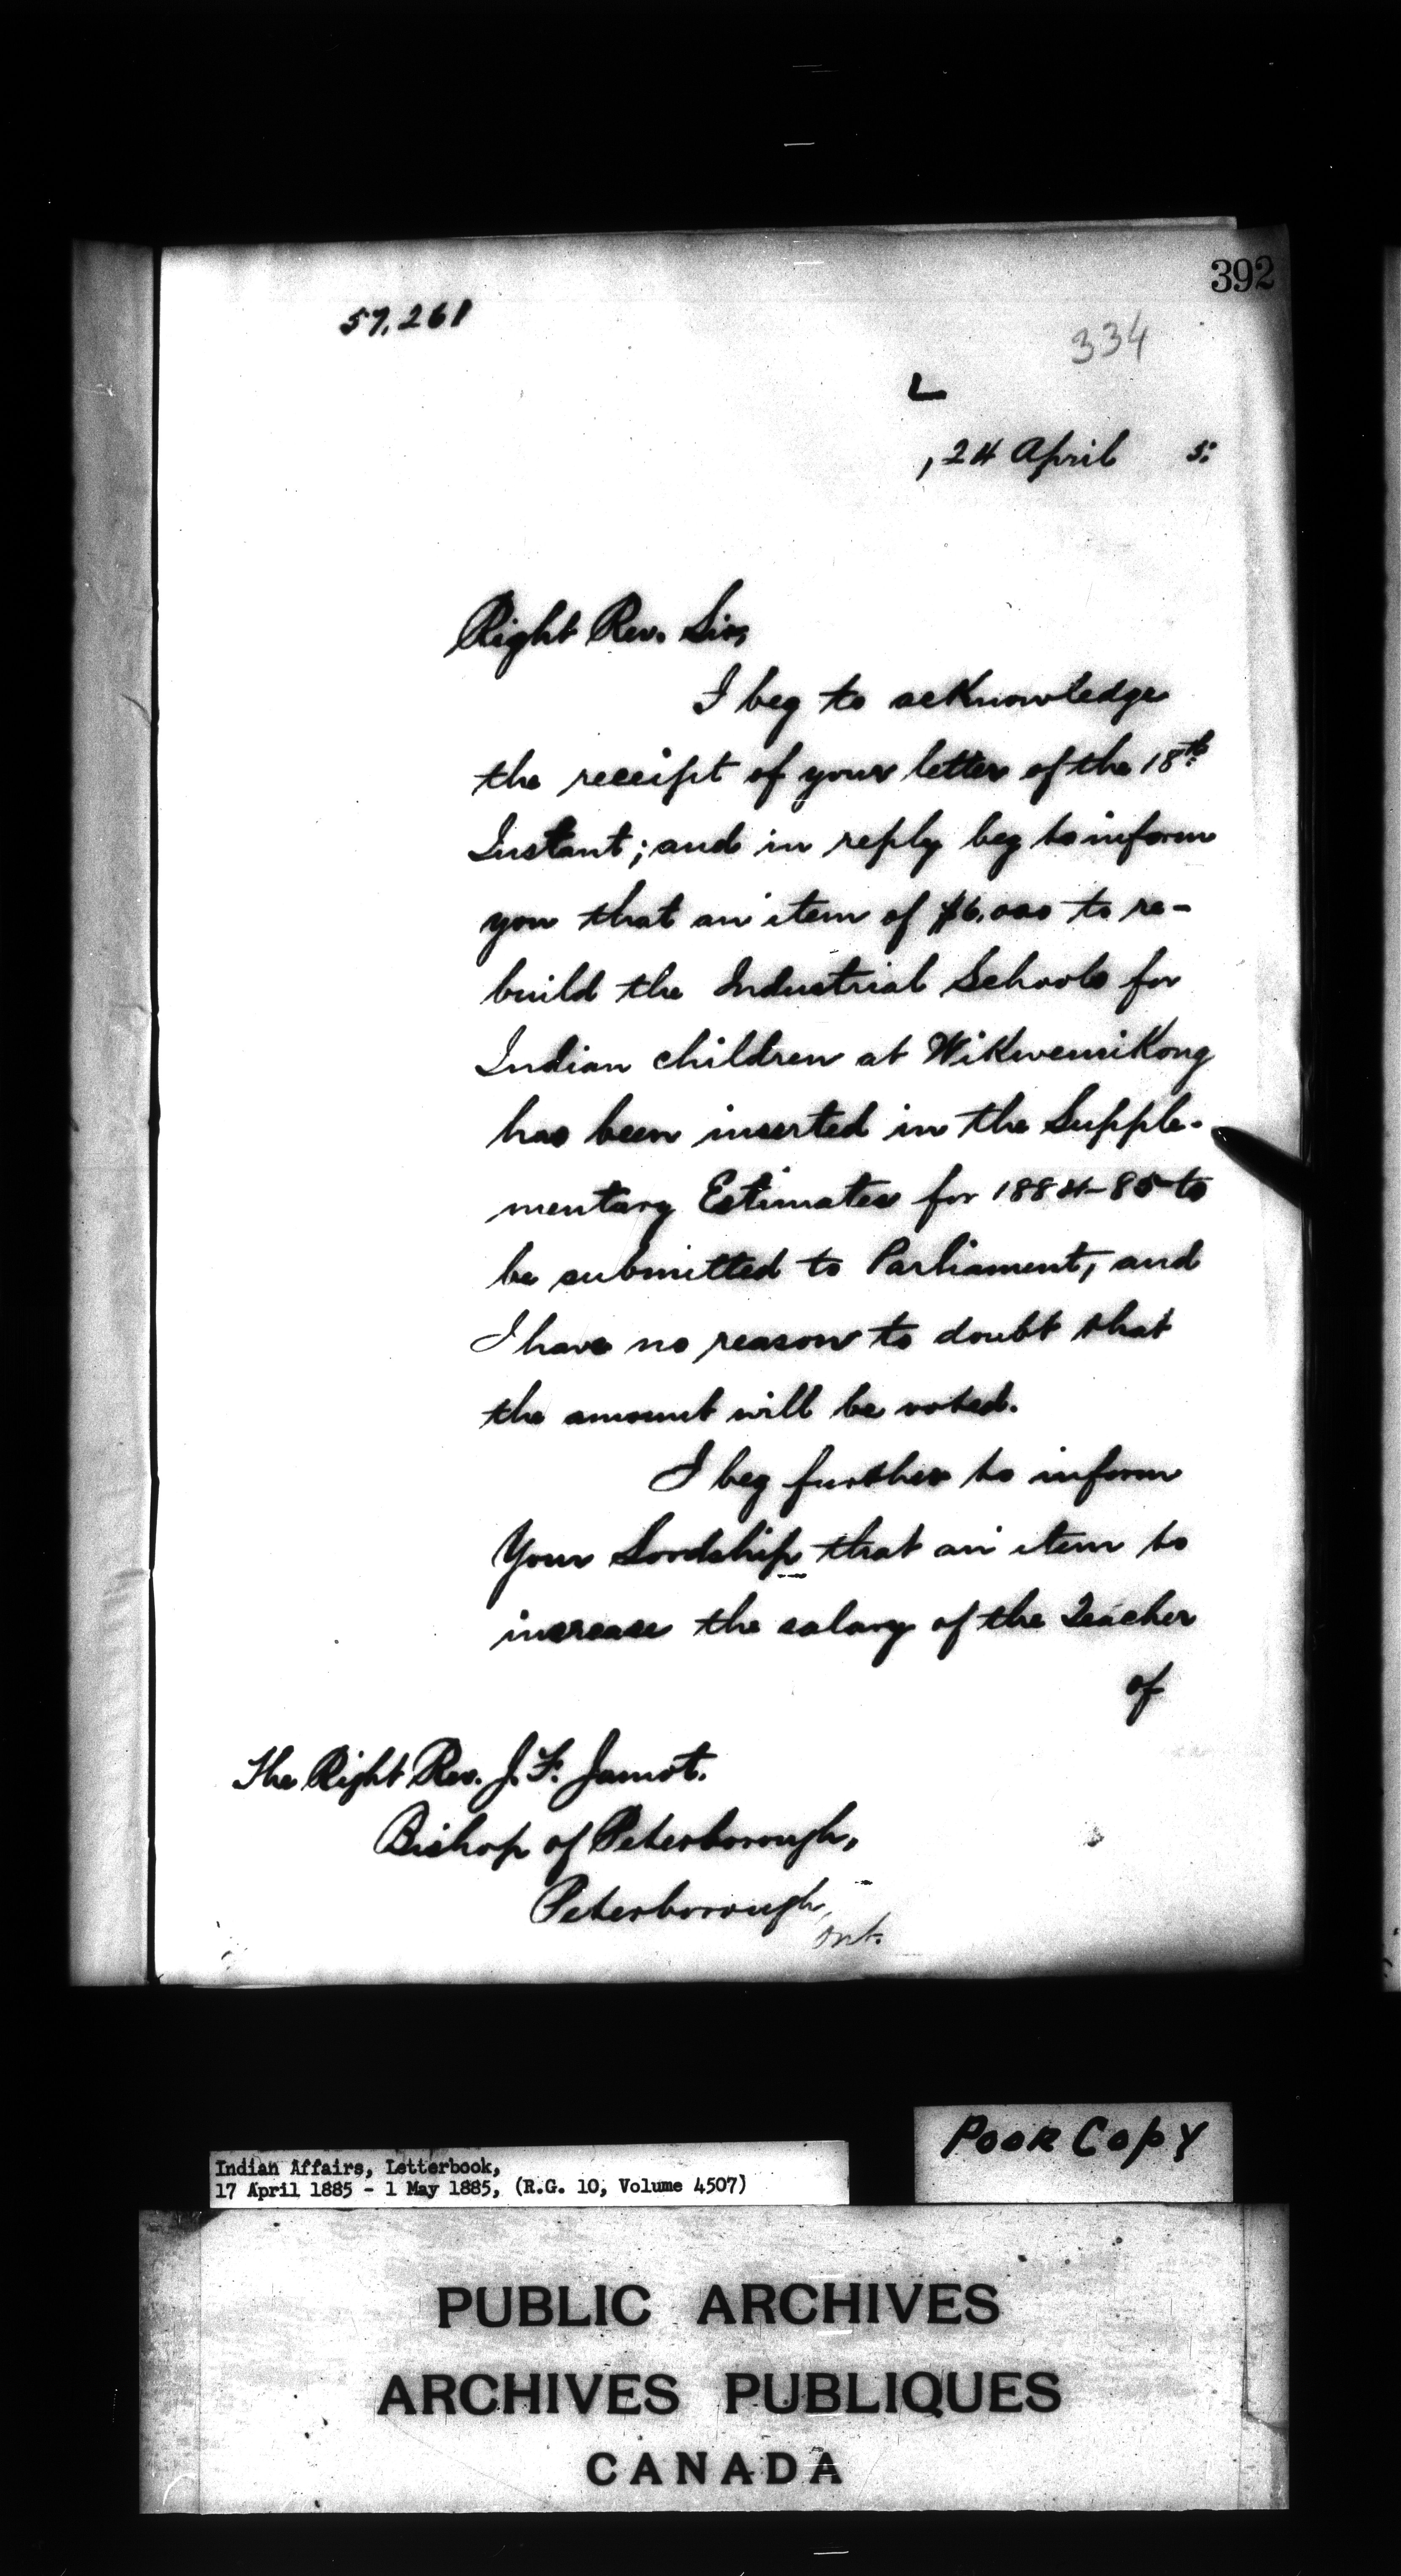 392
57,261
334
L
, 24 April 5.
Right Rev. Sir,
I beg to acknowledge
the receipt of your letter of the 18th
Instant; and in reply beg to inform
you that an item of $6,000 to re-
build the Industrial Schools for
Indian children at WiKwemiKong
has been inserted in the Supple-
mentary Estimates for 1884-85 to
be submitted to Parliament, and
I have no reason to doubt that
the amount will be voted.
I beg further to inform
Your Lordship that an item to
increase the salary of the Teacher
of
The Right Rev. J. F. Jamot.
Bishop of Peterborough,
Peterborough,
Ont.
Poor Copy
Indian Affairs, Letterbook,
17 April 1885 - 1 May 1885, (R.G. 10, Volume 4507)
PUBLIC ARCHIVES
ARCHIVES PUBLIQUES
CANADA